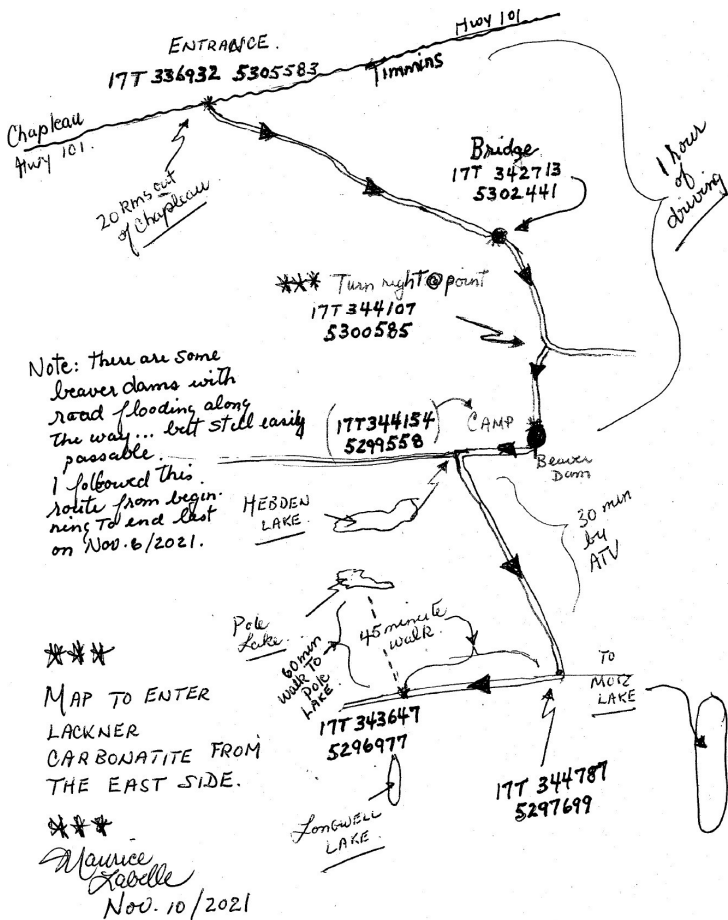 Hwy 101
ENTRANCE.
17T 336932 5305583
Timmins
Chapleau
Hwy 101.
20 Kms out
of Chapleau
Bridge
17T 342713
5302441
1 hour
of
driving
*** Turn right @ point
17T 344107
5300585
Note: there are some
beaver dams with
road flooding along
the way... but still easily
passable.
I followed this
route from begin-
ning to end last
on Nov. 6/2021.
(17T344154
5299558)
CAMP
Beaver
Dam
HEBDEN
LAKE
30 min
by
ATV
Pole
Lake
60 min
walk to
Pole
LAKE
45 minute
walk.
To
LAKE
17T 343647
5296977
17T 344787
5297699
LONGWELL
LAKE.
***
MAP TO ENTER
LACKNER
CARBONATITE FROM
THE EAST SIDE.
***
Maurice
Labelle
Nov. 10/2021